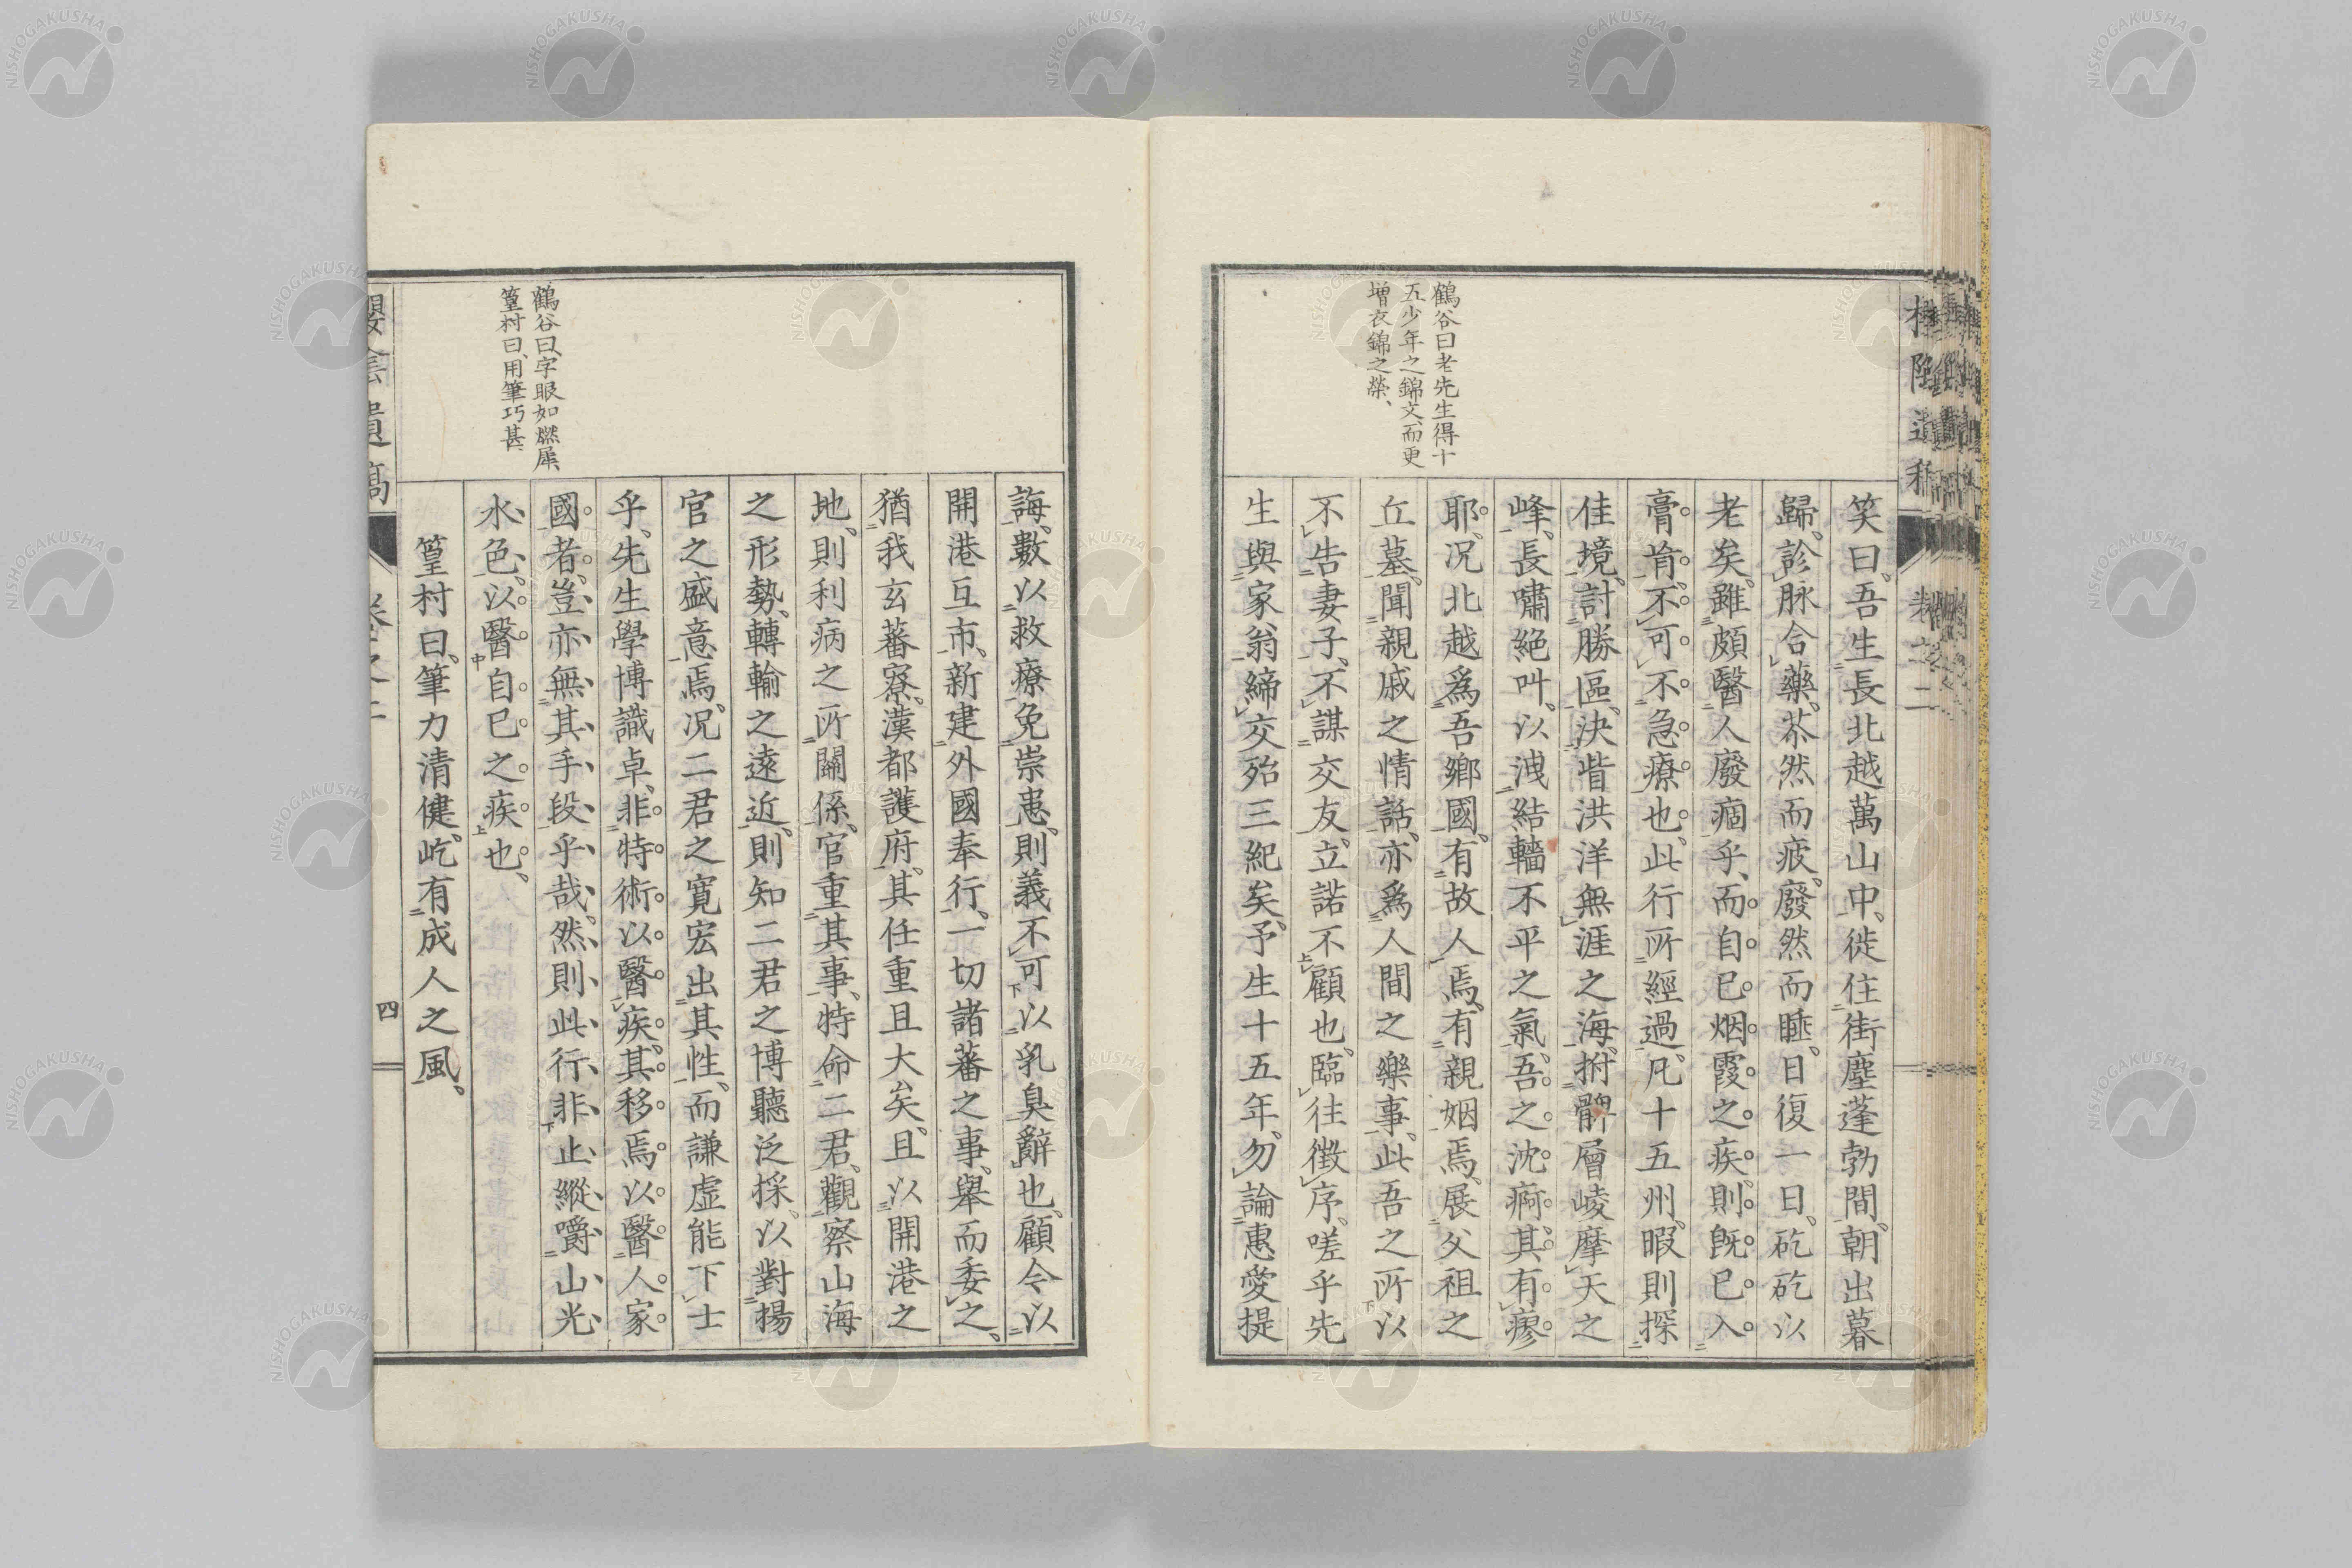 鶴谷曰老先生得十
五少年之錦文、而更
増衣錦之榮、
笑曰、吾生長北越萬山中、徙住街塵蓬勃間、朝出暮
歸、診脉合藥、苶然而疲、廢然而睡、日復一日、矻矻以
老矣、雖頗醫人廢痼乎、而自已烟霞之疾、則既已入
膏肓、不可不急療也、此行所經過、凡十五州、暇則探
佳境、討勝區、決眥洪洋無涯之海、拊髀層崚摩天之
峰、長嘯絕叫、以洩結轖不平之氣、吾之沈痾、其有瘳
耶、况北越爲吾鄉國、有故人焉、有親姻焉、展父祖之
丘墓、聞親戚之情話、亦爲人間之樂事、此吾之所以
不告妻子、不謀交友、立諾不顧也、臨往徵序、嗟乎先
生與家翁締交殆三紀矣、予生十五年、勿論惠愛提
鶴谷曰、字眼如燃犀、
篁村曰、用筆巧甚、
誨、數以救療免祟患、則義不可以乳臭辭也、顧今以
開港互市、新建外國奉行、一切諸蕃之事、舉而委之、
猶我玄蕃寮、漢都護府、其任重且大矣、且以開港之
地、則利病之所關係、官重其事、特命二君、觀察山海
之形勢、轉輸之遠近、則知二君之博聽泛採、以對揚
官之盛意焉、况二君之寬宏出其性、而謙虛能下士
乎、先生學博識卓、非特術以醫疾、其移焉以醫人家
國者、豈亦無其手段乎哉、然則此行非止縱嚼山光
水色、以醫自已之疾也、
篁村曰、筆力清健、屹有成人之風、
遺稿
四